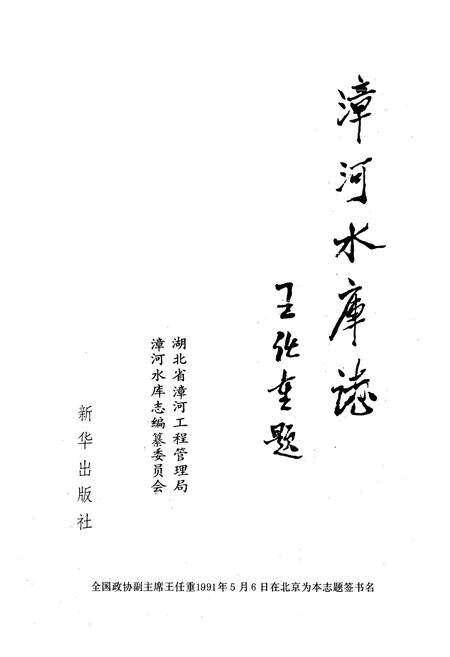 漳河水库誌
王任重题
湖北省漳河工程管理局
漳河水库志编纂委员会
新华出版社
全国政协副主席王任重1991年5月6日在北京为本志题签书名